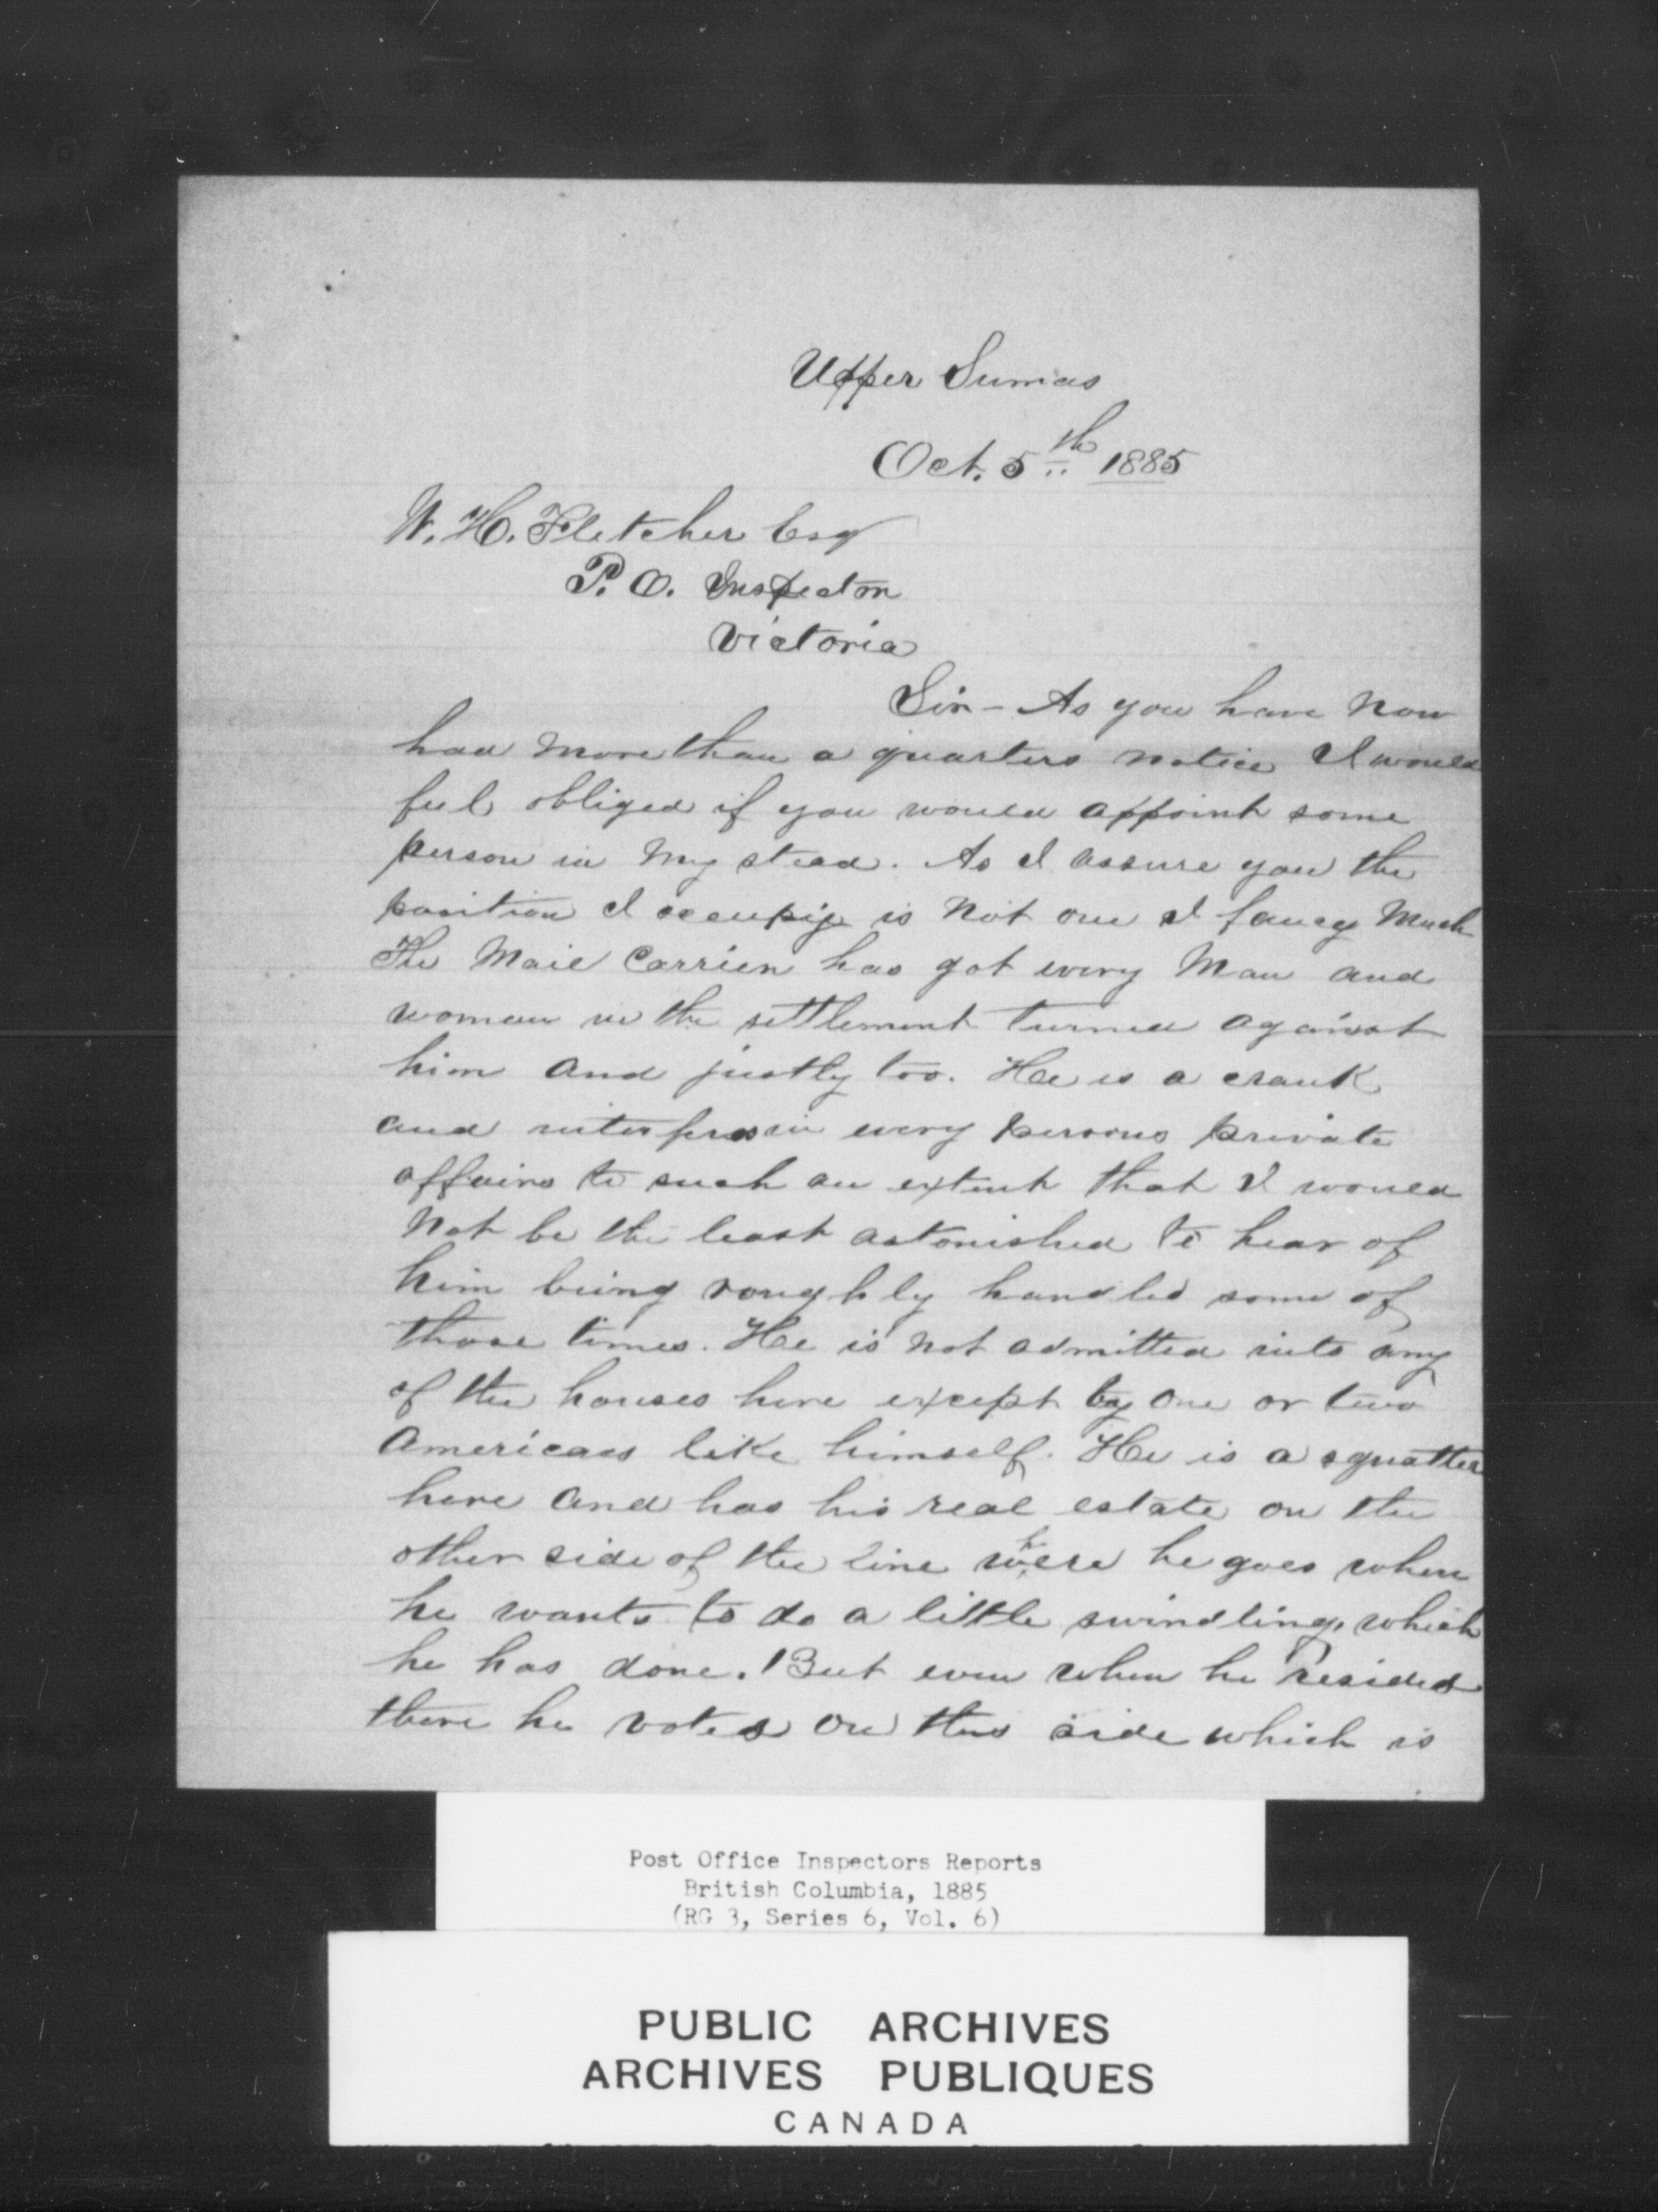 Upper Sumas
Oct. 5th 1885
W. H. Fletcher Esq
P. O. Inspector
Victoria
Sir - As you have now
had more than a quarters notice I would
feel obliged if you would appoint some
person in my stead. As I assure you the
position I occupy is not one I fancy much
The Mail Carrier has got every man and
woman in the settlement turned against
him and justly too. He is a crank
and interferes in every persons private
affairs to such an extent that I would
not be the least astonished to hear of
him being roughly handled some of
those times. He is not admitted into any
of the houses here except by one or two
Americans like himself. He is a squatter
here and has his real estate on the
other side of the line where he goes when
he wants to do a little swindling, which
he has done. But even when he resided
there he voted on this side which is
Post Office Inspectors Reports
British Columbia, 1885
(RG 3, Series 6, Vol. 6)
PUBLIC ARCHIVES
ARCHIVES PUBLIQUES
CANADA